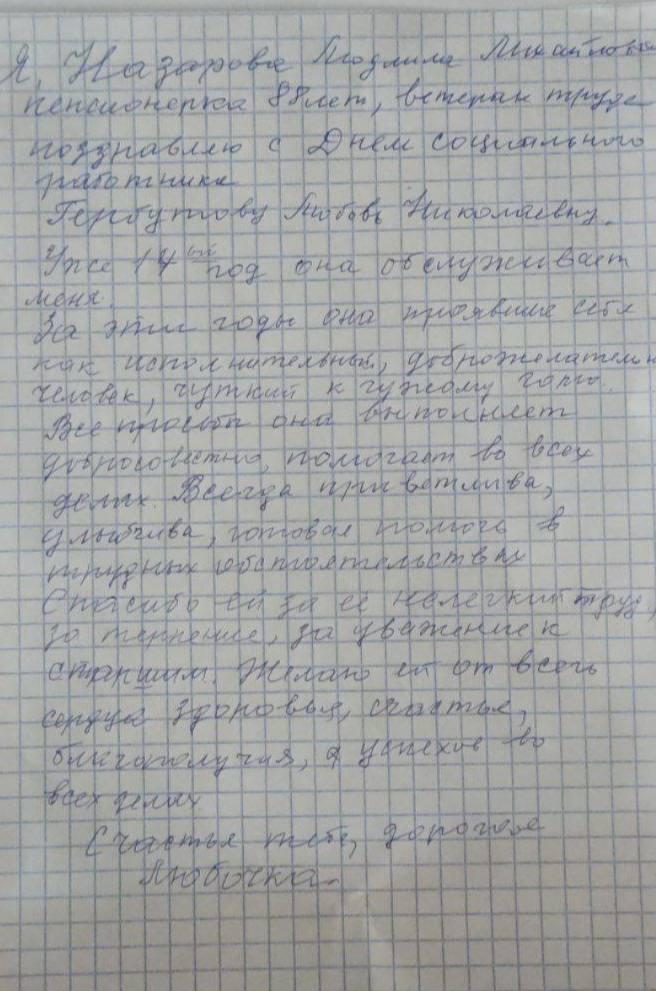 Я, Назарова Людмила Михайловна
пенсионерка 88 лет, ветеран труда
поздравляю с Днем социального
работника
Гербутову Любовь Николаевну.
Уже 14ый год она обслуживает
меня.
За эти годы она проявила себя
как исполнительный, доброжелательн
человек, чуткий к чужому горю.
Все просьбы она выполняет
добросовестно, помогает во всех
делах. Всегда приветлива,
улыбчива, готовая помочь в
трудных обстоятельствах
Спасибо ей за её нелегкий труд,
за терпение, за уважение к
старшим. Желаю ей от всего
сердца здоровья, счастья,
благополучия, успехов во
всех делах
Счастья тебе, дорогая
Любочка.